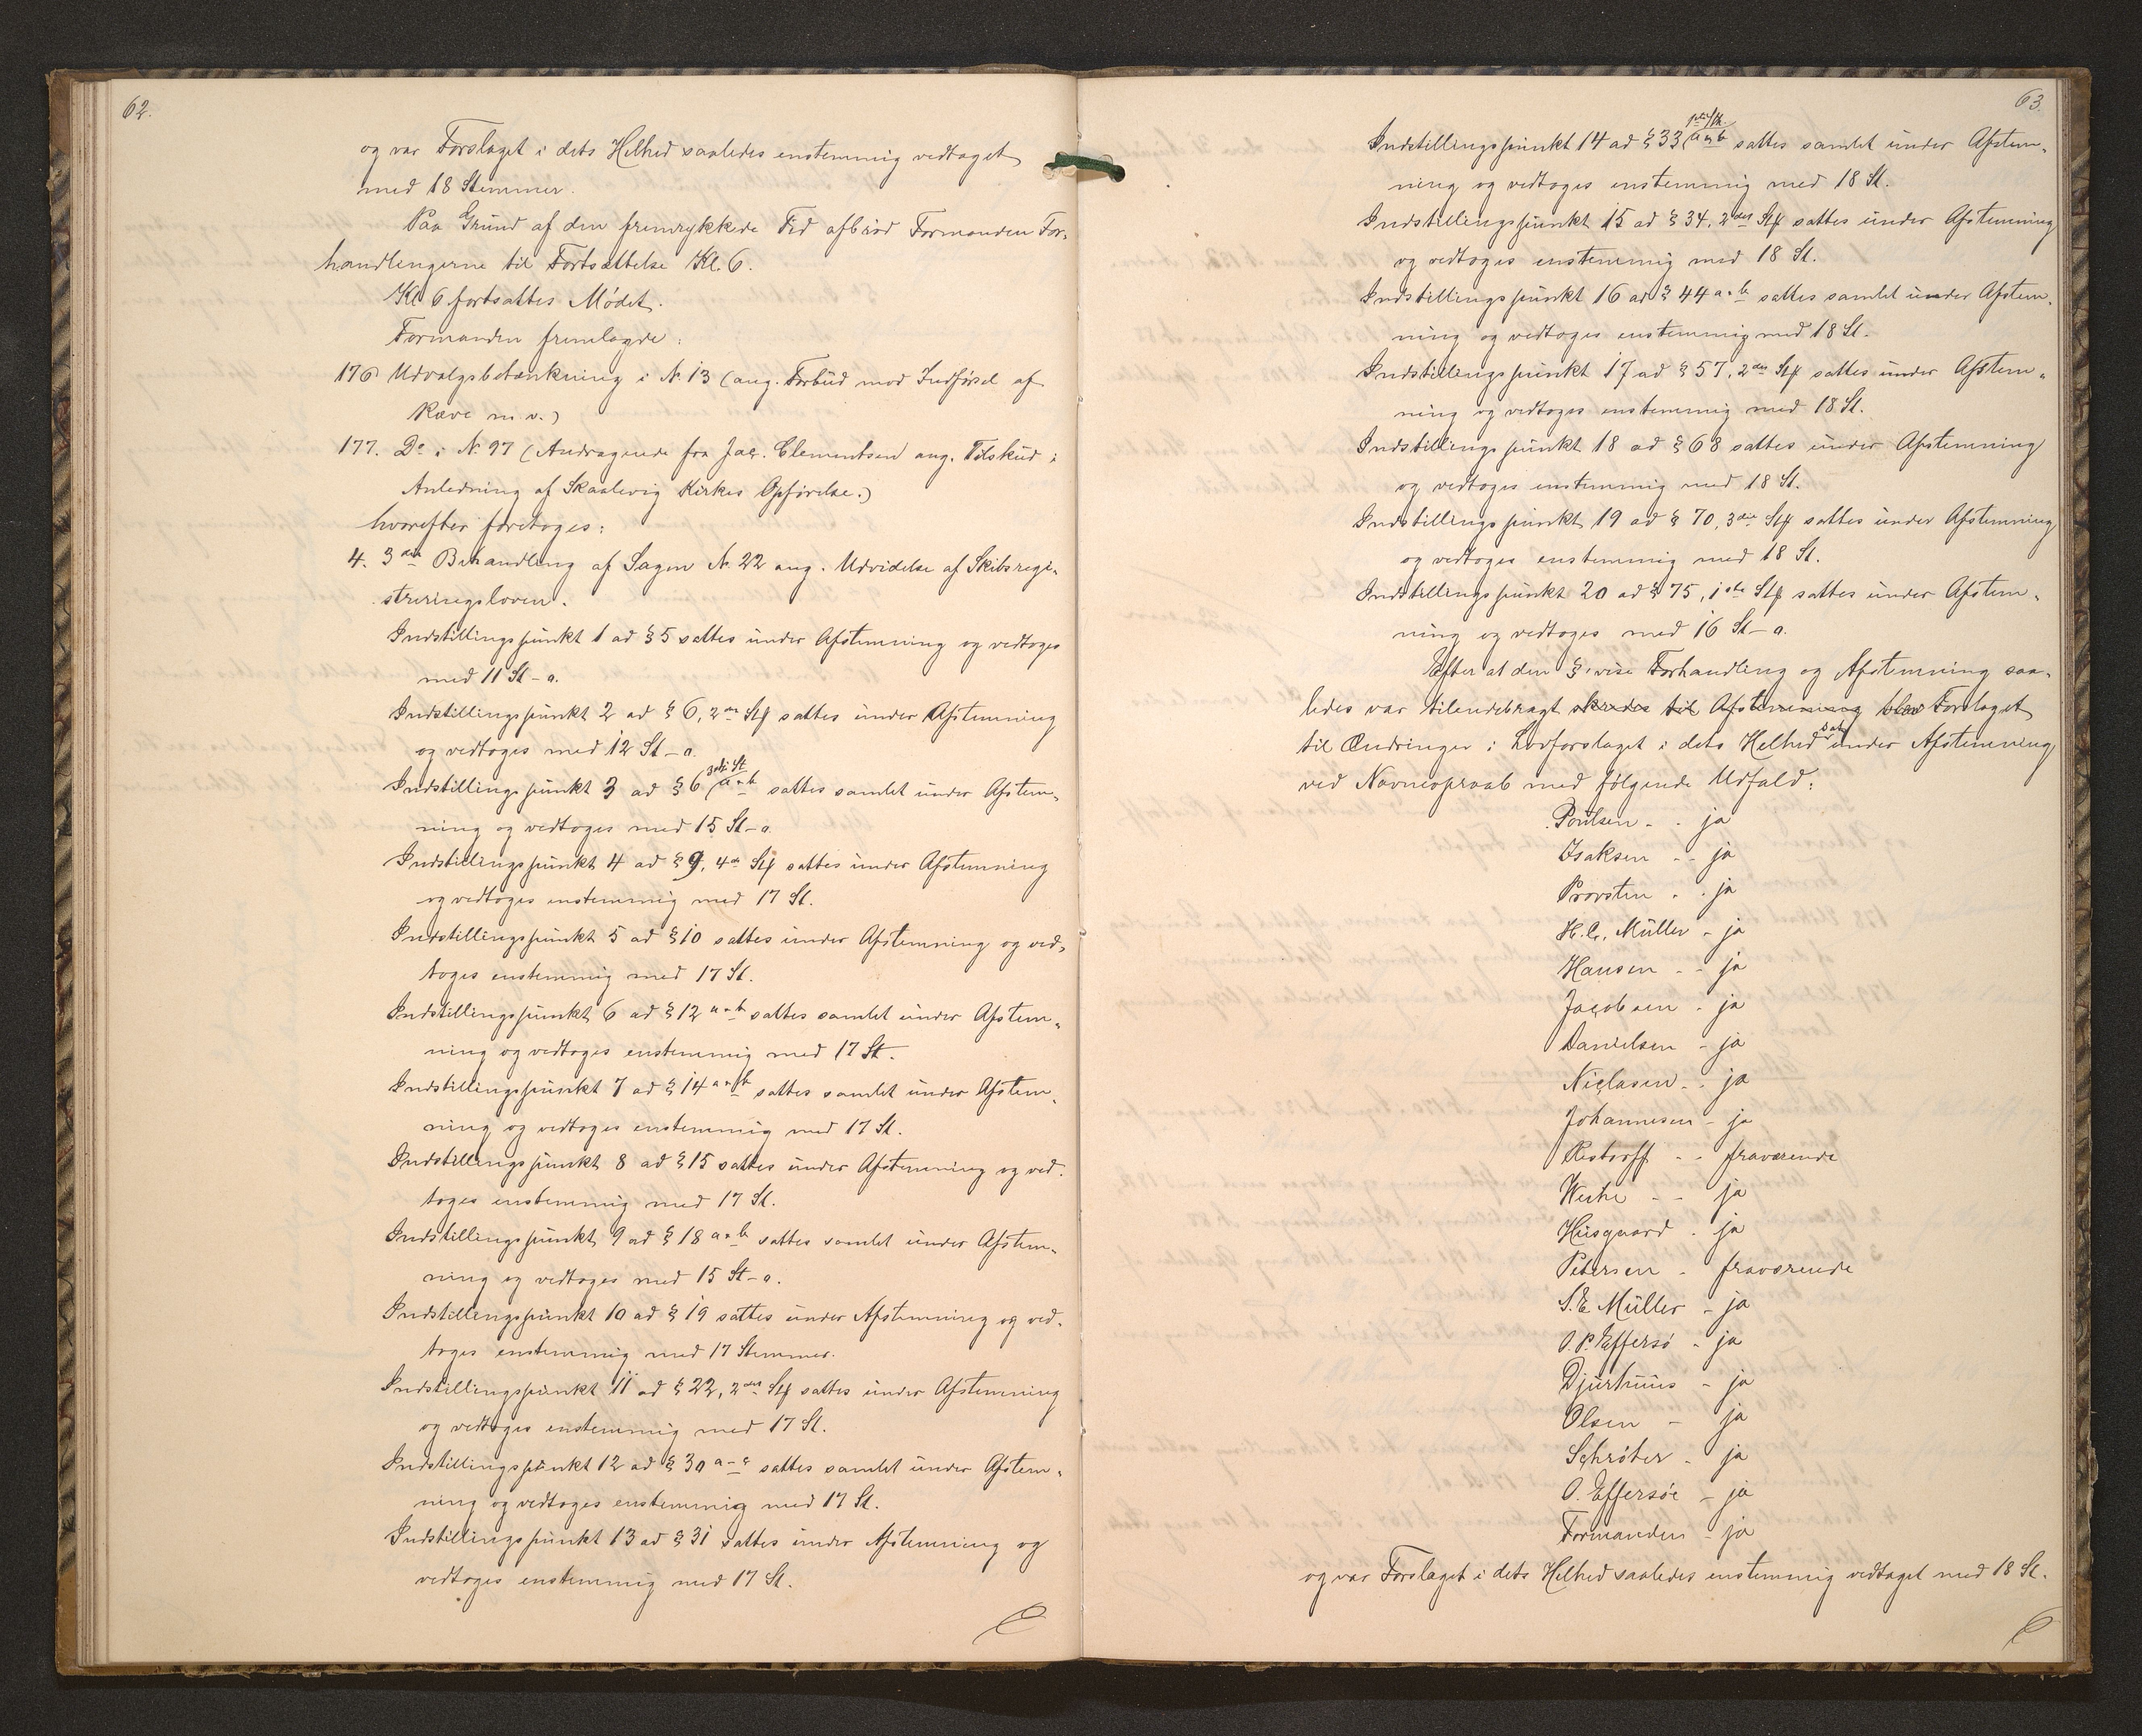 62.
og var Forslaget i dets Helhed saaledes enstemmig vedtaget
med 18 Stemmer.
Paa Grund af den fremrykkede Tid afbrød Formanden For-
handlingerne til Fortsættelse Kl. 6.
Kl 6 fortsattes Mødet.
Formanden fremlagde:
176 Udvalgsbetænkning i N. 13 (ang. Forbud mod Indførsel af
Ræve m.v.)
177. Do i N. 97 (Andragende fra Jac. Clementsen ang. Tilskud i
Anledning af Skaalevig Kirkes Opførelse.)
hvorefter foretoges:
4. 3die Behandling af Sagen N. 22 ang. Udvidelse af Skibsregi-
streringsloven.
Indstillingspunkt 1 ad § 5 sattes under Afstemning og vedtoges
med 11 St - o.
Indstillingspunkt 2 ad § 6, 2det Stk sattes under Afstemning
og vedtoges med 12 St - o.
Indstillingspunkt 3 ad § 6 3die St a - b sattes samlet under Afstem-
ning og vedtoges med 15 St - o.
Indstillingspunkt 4 ad § 9, 4de Stk sattes under Afstemning
og vedtoges enstemmig med 17 St.
Indstillingspunkt 5 ad § 10 sattes under Afstemning og ved-
toges enstemmig med 17 St.
Indstillingspunkt 6 ad § 12 a - b sattes samlet under Afstem-
ning og vedtoges enstemmig med 17 St.
Indstillingspunkt 7 ad § 14 a - b sattes samlet under Afstem-
ning og vedtoges enstemmig med 17 St.
Indstillingspunkt 8 ad § 15 sattes under Afstemning og ved-
toges enstemmig med 17 St.
Indstillingspunkt 9 ad § 18 a - b sattes samlet under Afstem-
ning og vedtoges med 15 St - o.
Indstillingspunkt 10 ad § 19 sattes under Afstemning og ved-
toges enstemmig med 17 Stemmer.
Indstillingspunkt 11 ad § 22, 2det Stk sattes under Afstemning
og vedtoges enstemmig med 17 St.
Indstillingspunkt 12 ad § 30 a - c sattes samlet under Afstem-
ning og vedtoges enstemmig med 17 St.
Indstillingspunkt 13 ad § 31 sattes under Afstemning og
vedtoges enstemmig med 17 St.
63.
Indstillingspunkt 14 ad § 33 a og b sattes samlet under Afstem-
ning og vedtoges enstemmig med 18 St.
Indstillingspunkt 15 ad § 34, 2det Stk sattes under Afstemning
og vedtoges enstemmig med 18 St.
Indstillingspunkt 16 ad § 44 a - b sattes samlet under Afstem-
ning og vedtoges enstemmig med 18 St.
Indstillingspunkt 17 ad § 57, 2det Stk sattes under Afstem-
ning og vedtoges enstemmig med 18 St.
Indstillingspunkt 18 ad § 68 sattes under Afstemning
og vedtoges enstemmig med 18 St.
Indstillingspunkt 19 ad § 70, 3die Stk sattes under Afstemning
og vedtoges enstemmig med 18 St.
Indstillingspunkt 20 ad § 75, 1ste Stk sattes under Afstem-
ning og vedtoges med 16 St - o.
Efter at den §'vise Forhandling og Afstemning saa-
ledes var tilendebragt skredes til Afstemning blev Forslaget
til Ændringer i Lovforslaget i dets Helhed sat under Afstemning
ved Navneopraab med følgende Udfald:
Poulsen - - ja
Isaksen - - ja
Provsten - - ja
H. C. Müller - ja
Hansen - - ja
Jacobsen - ja
Danielsen - ja
Niclasen - - ja
Johannesen - ja
Restorff - - fraværende
Weihe - - ja
Husgaard - ja
Petersen - fraværende
S. E. Müller - ja
O. P. Effersö - ja
Djurhuus - ja
Olsen - ja
Schröter - ja
O. Effersöe - ja
Formanden - ja
og var Forslaget i dets Helhed saaledes enstemmig vedtaget med 18 St.